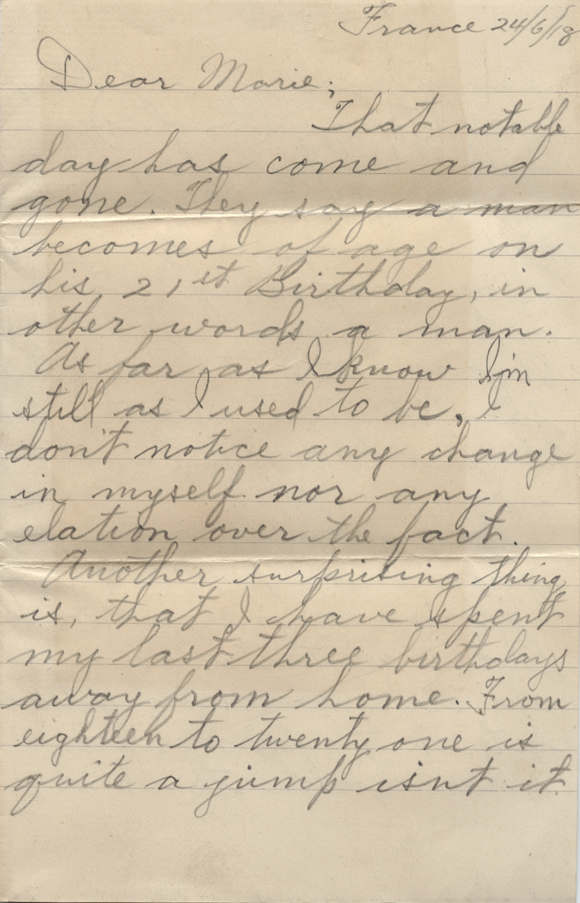 France 24/6/18
Dear Marie;
That notable
day has come and
gone. They say a man
becomes of age on
his 21st Birthday, in
other words a man.
As far as I know I'm
still as I used to be, I
don't notice any change
in myself nor any
elation over the fact.
Another surprising thing
is, that I have spent
my last three birthdays
away from home. From
eighteen to twenty one is
quite a jump isnt it